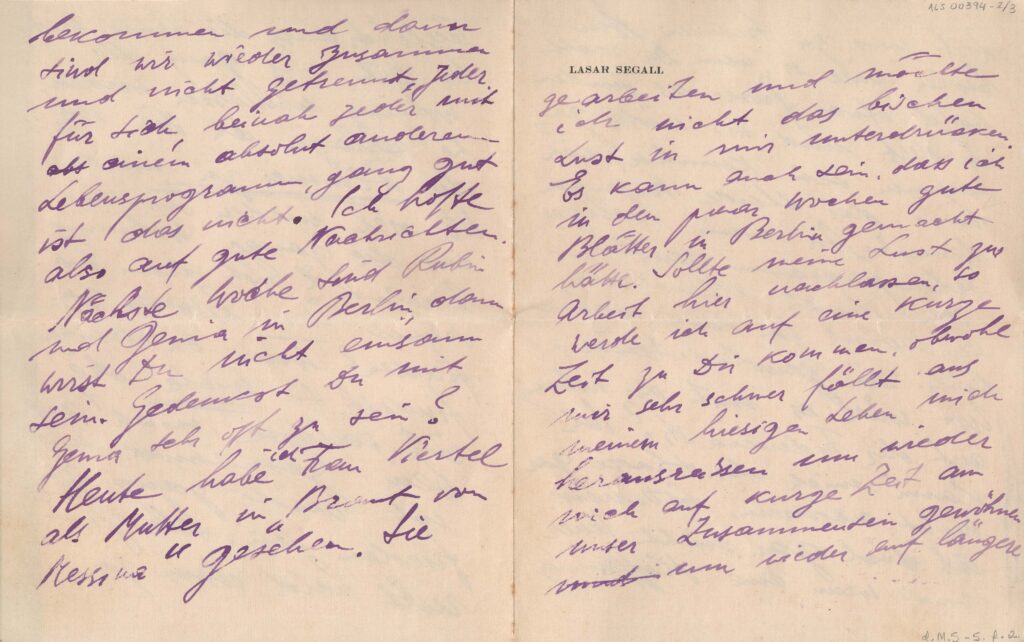 bekommen und dann
sind wir wieder zusammen
und nicht getrennt, jeder
für sich, beinah jeder mit
einem absolut anderem
Lebensprogramm, ganz gut
ist das nicht. Ich hoffe
also auf gute Nachrichten.
Nächste Woche sind Rubin
und Genia in Berlin, dann
wirst Du nicht einsam
sein. Gedenkst Du mit
Genia sehr oft zu sein?
Heute habe ich Frau Viertel
als Mutter in „Braut von
Messina" gesehen. Sie
ALS 00394-2/3
LASAR SEGALL
gearbeiten und möchte
ich nicht das bischen
Lust in mir unterdrücken.
Es kann auch sein, dass ich
in den paar Wochen gute
Blätter in Berlin gemacht
hätte. Sollte meine Lust zur
Arbeit hier nachlassen, so
werde ich auf eine kurze
Zeit zu Dir kommen, obwohl
mir sehr schwer fällt aus
meinem hiesigen Leben mich
herausreissen um wieder
mich auf kurze Zeit an
unser Zusammensein gewöhnen
um wieder auf längere